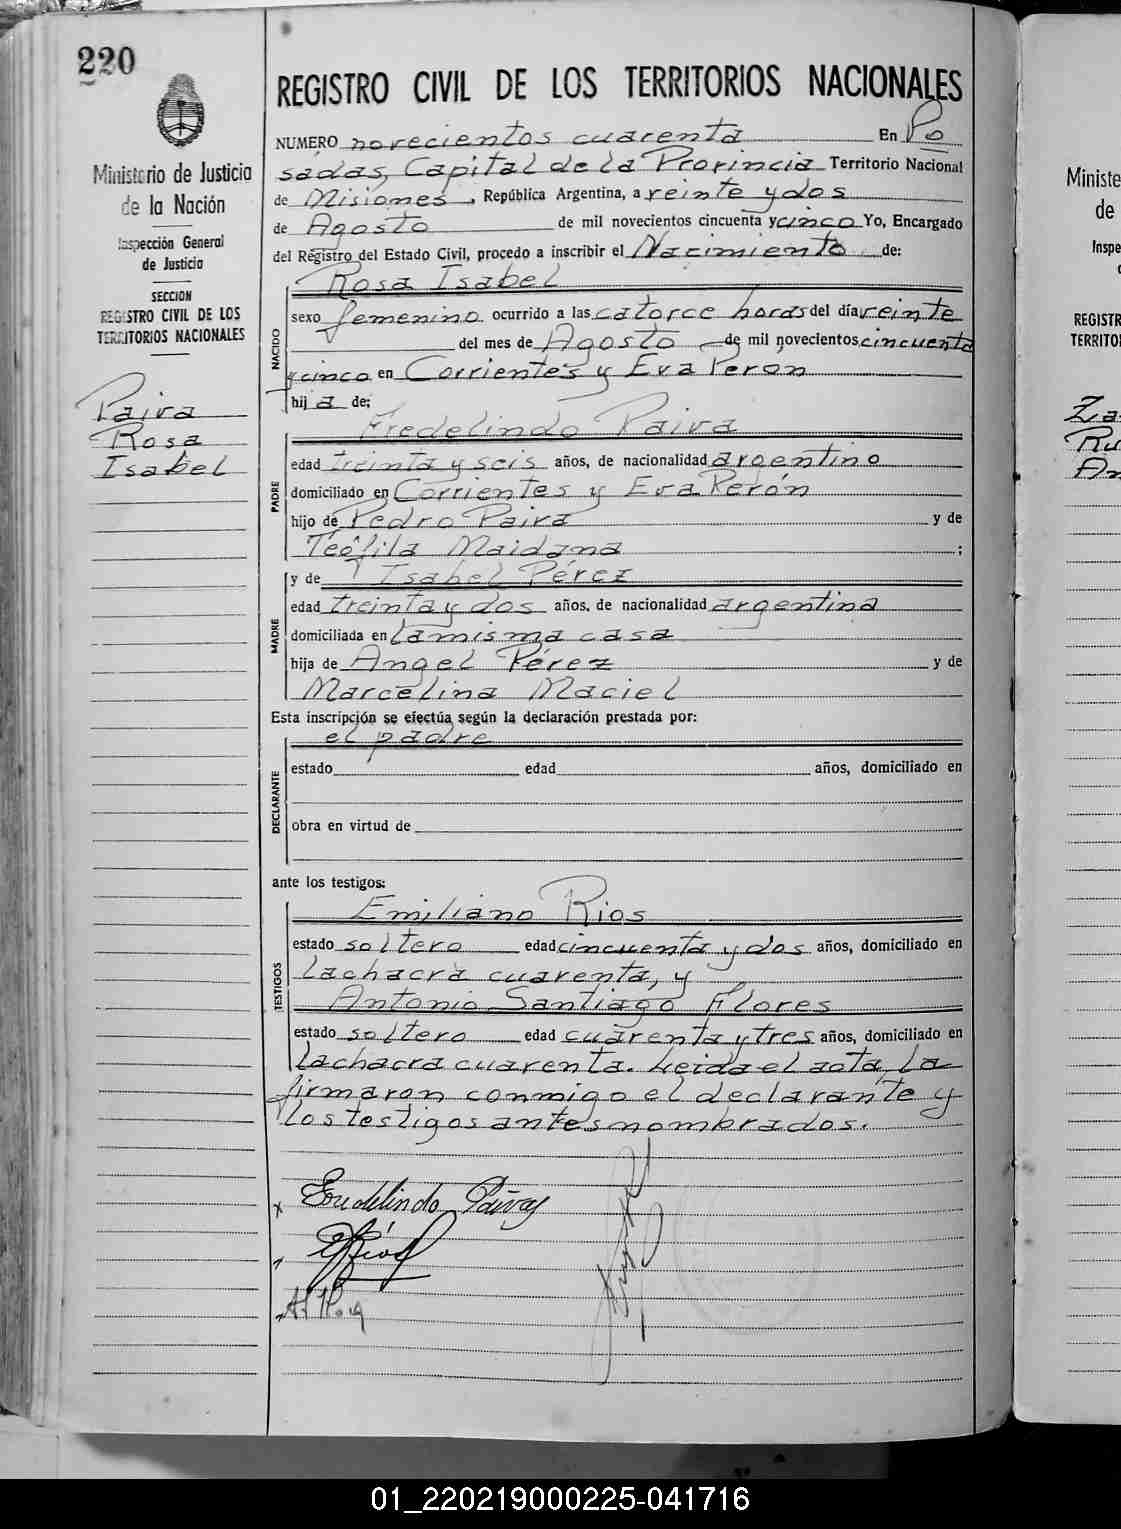 220
Ministerio de Justicia
de la Nación
Inspección General
de Justicia
SECCION
REGISTRO CIVIL DE LOS
TERRITORIOS NACIONALES
Paiva
Rosa
Isabel
REGISTRO CIVIL DE LOS TERRITORIOS NACIONALES
NUMERO novecientos cuarenta En Po
sadas, Capital de la Provincia Territorio Nacional
de Misiones, República Argentina, a veinte y dos
de Agosto de mil novecientos cincuenta y cinco Yo, Encargado
del Registro del Estado Civil, procedo a inscribir el Nacimiento de:
Rosa Isabel
NACIDO
sexo femenino ocurrido a las catorce horas del día veinte
del mes de Agosto de mil novecientos cincuenta
y cinco en Corrientes y Eva Peron
hij a de:
Fredelindo Paiva
PADRE
edad treinta y seis años, de nacionalidad argentino
domiciliado en Corrientes y Eva Perón
hijo de Pedro Paiva y de
Teófila Maidana ;
y de Isabel Pérez
MADRE
edad treinta y dos años, de nacionalidad argentina
domiciliada en la misma casa
hija de Angel Pérez y de
Marcelina Maciel
Esta inscripción se efectúa según la declaración prestada por:
el padre
DECLARANTE
estado edad años, domiciliado en
obra en virtud de
ante los testigos:
Emiliano Rios
TESTIGOS
estado soltero edad cincuenta y dos años, domiciliado en
la chacra cuarenta, y
Antonio Santiago Flores
estado soltero edad cuarenta y tres años, domiciliado en
la chacra cuarenta. Leida el acta, la
firmaron conmigo el declarante y
los testigos antes nombrados.
x Eudelindo
Ministe
de
Inspe
REGISTR
TERRITO
01_220219000225-041716